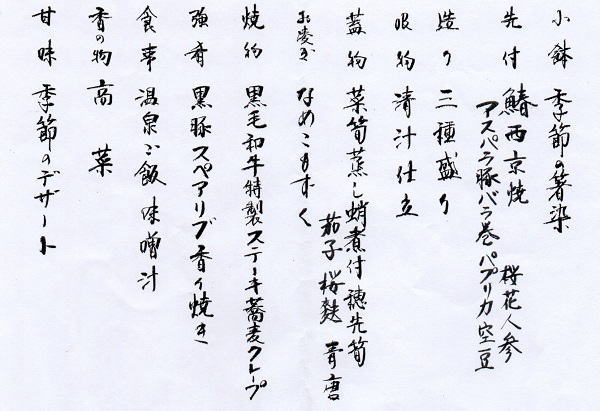 小鉢 季節の箸染
先付 鰆西京焼 桜花人参
アスパラ豚バラ巻パプリカ空豆
造り 三種盛り
吸物 清汁仕立
蓋物 菜筍蒸し蛸煮付穂先筍
茄子桜麩 青唐
お凌ぎ なめこもずく
焼物 黒毛和牛特製ステーキ蕎麦クレープ
強肴 黒豚スペアリブ香イ焼き
食事 温泉ご飯 味噌汁
香の物 高菜
甘味 季節のデザート